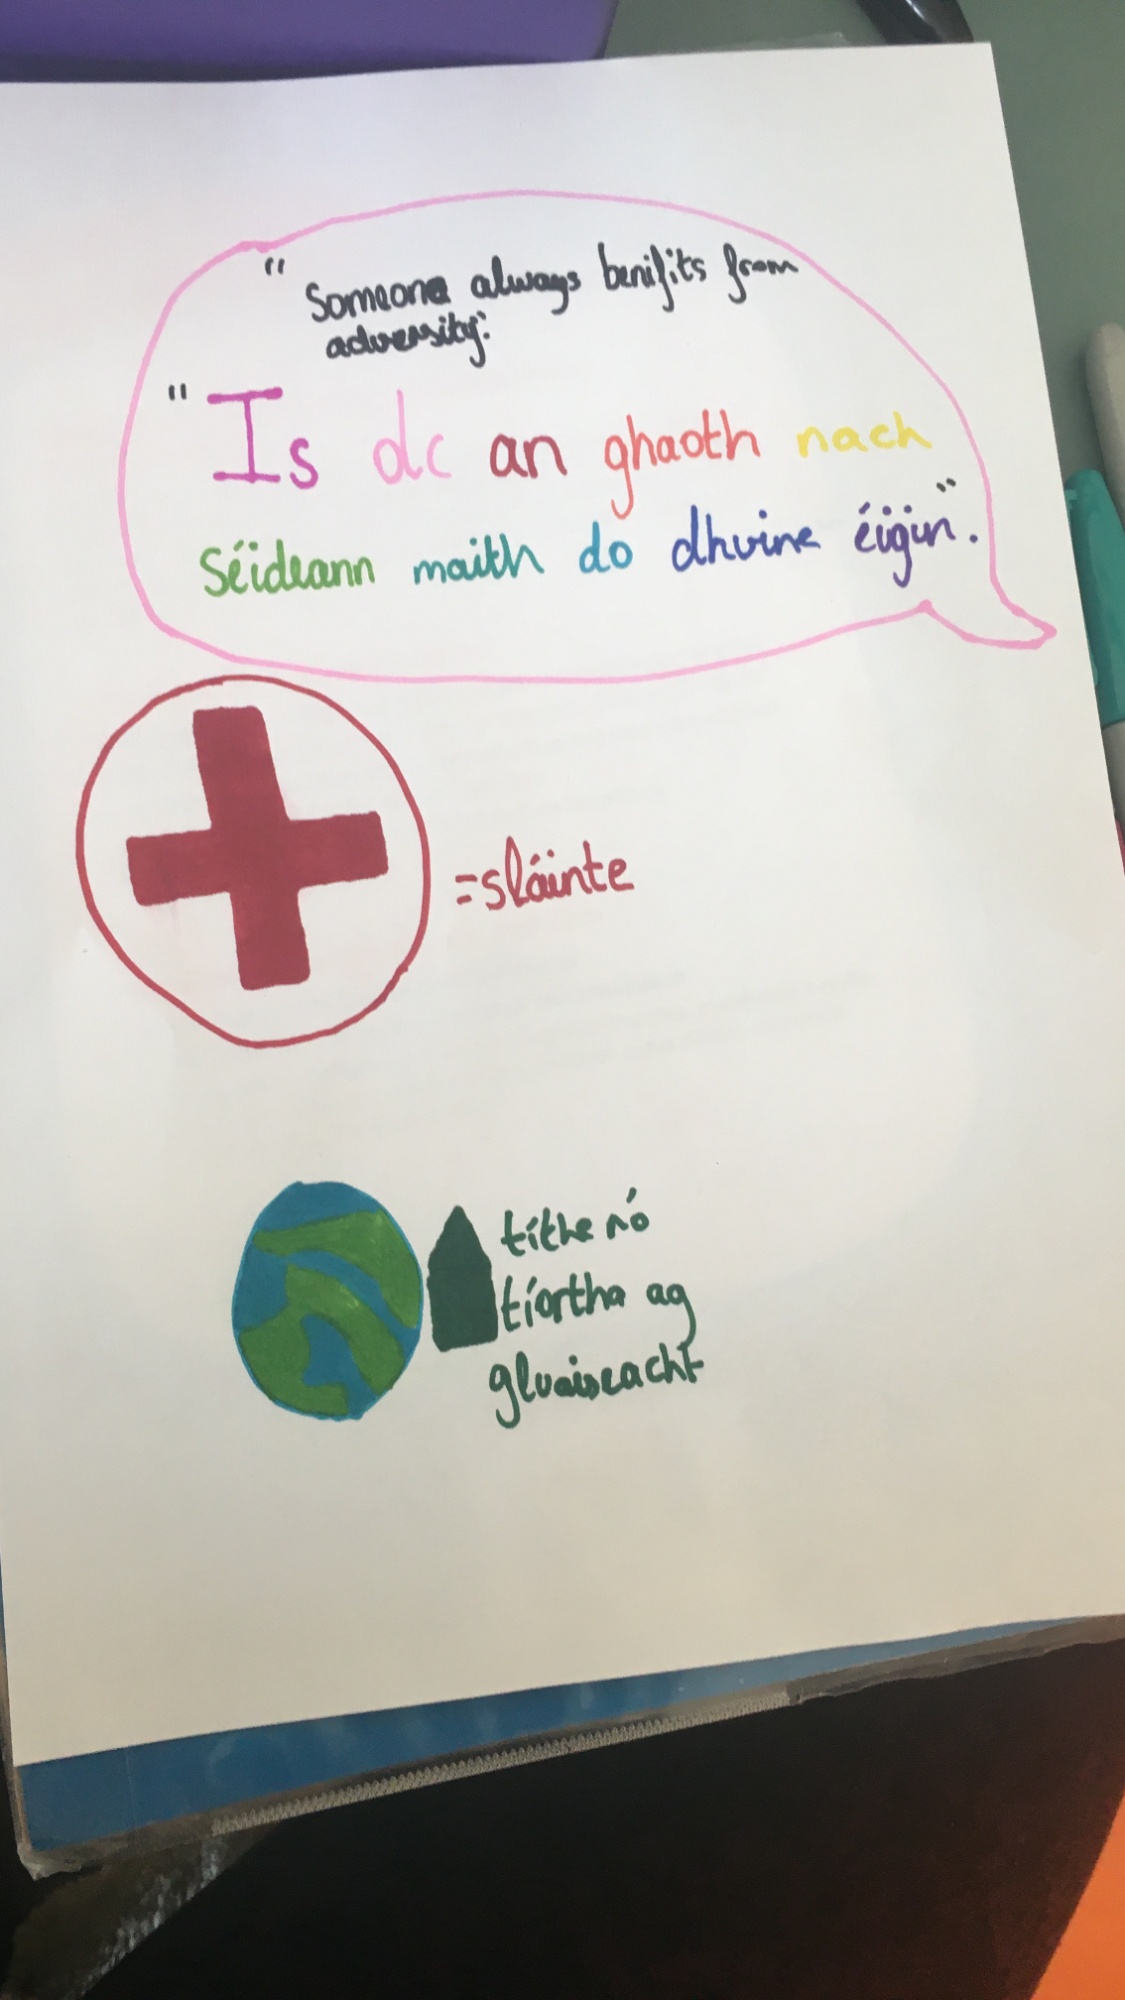 " Someone always benifits from
adversity."
"Is dc an ghaoth nach
séideann maith do dhuine éigin."
=sláinte
títhe nó
tíortha ag
gluaiseacht